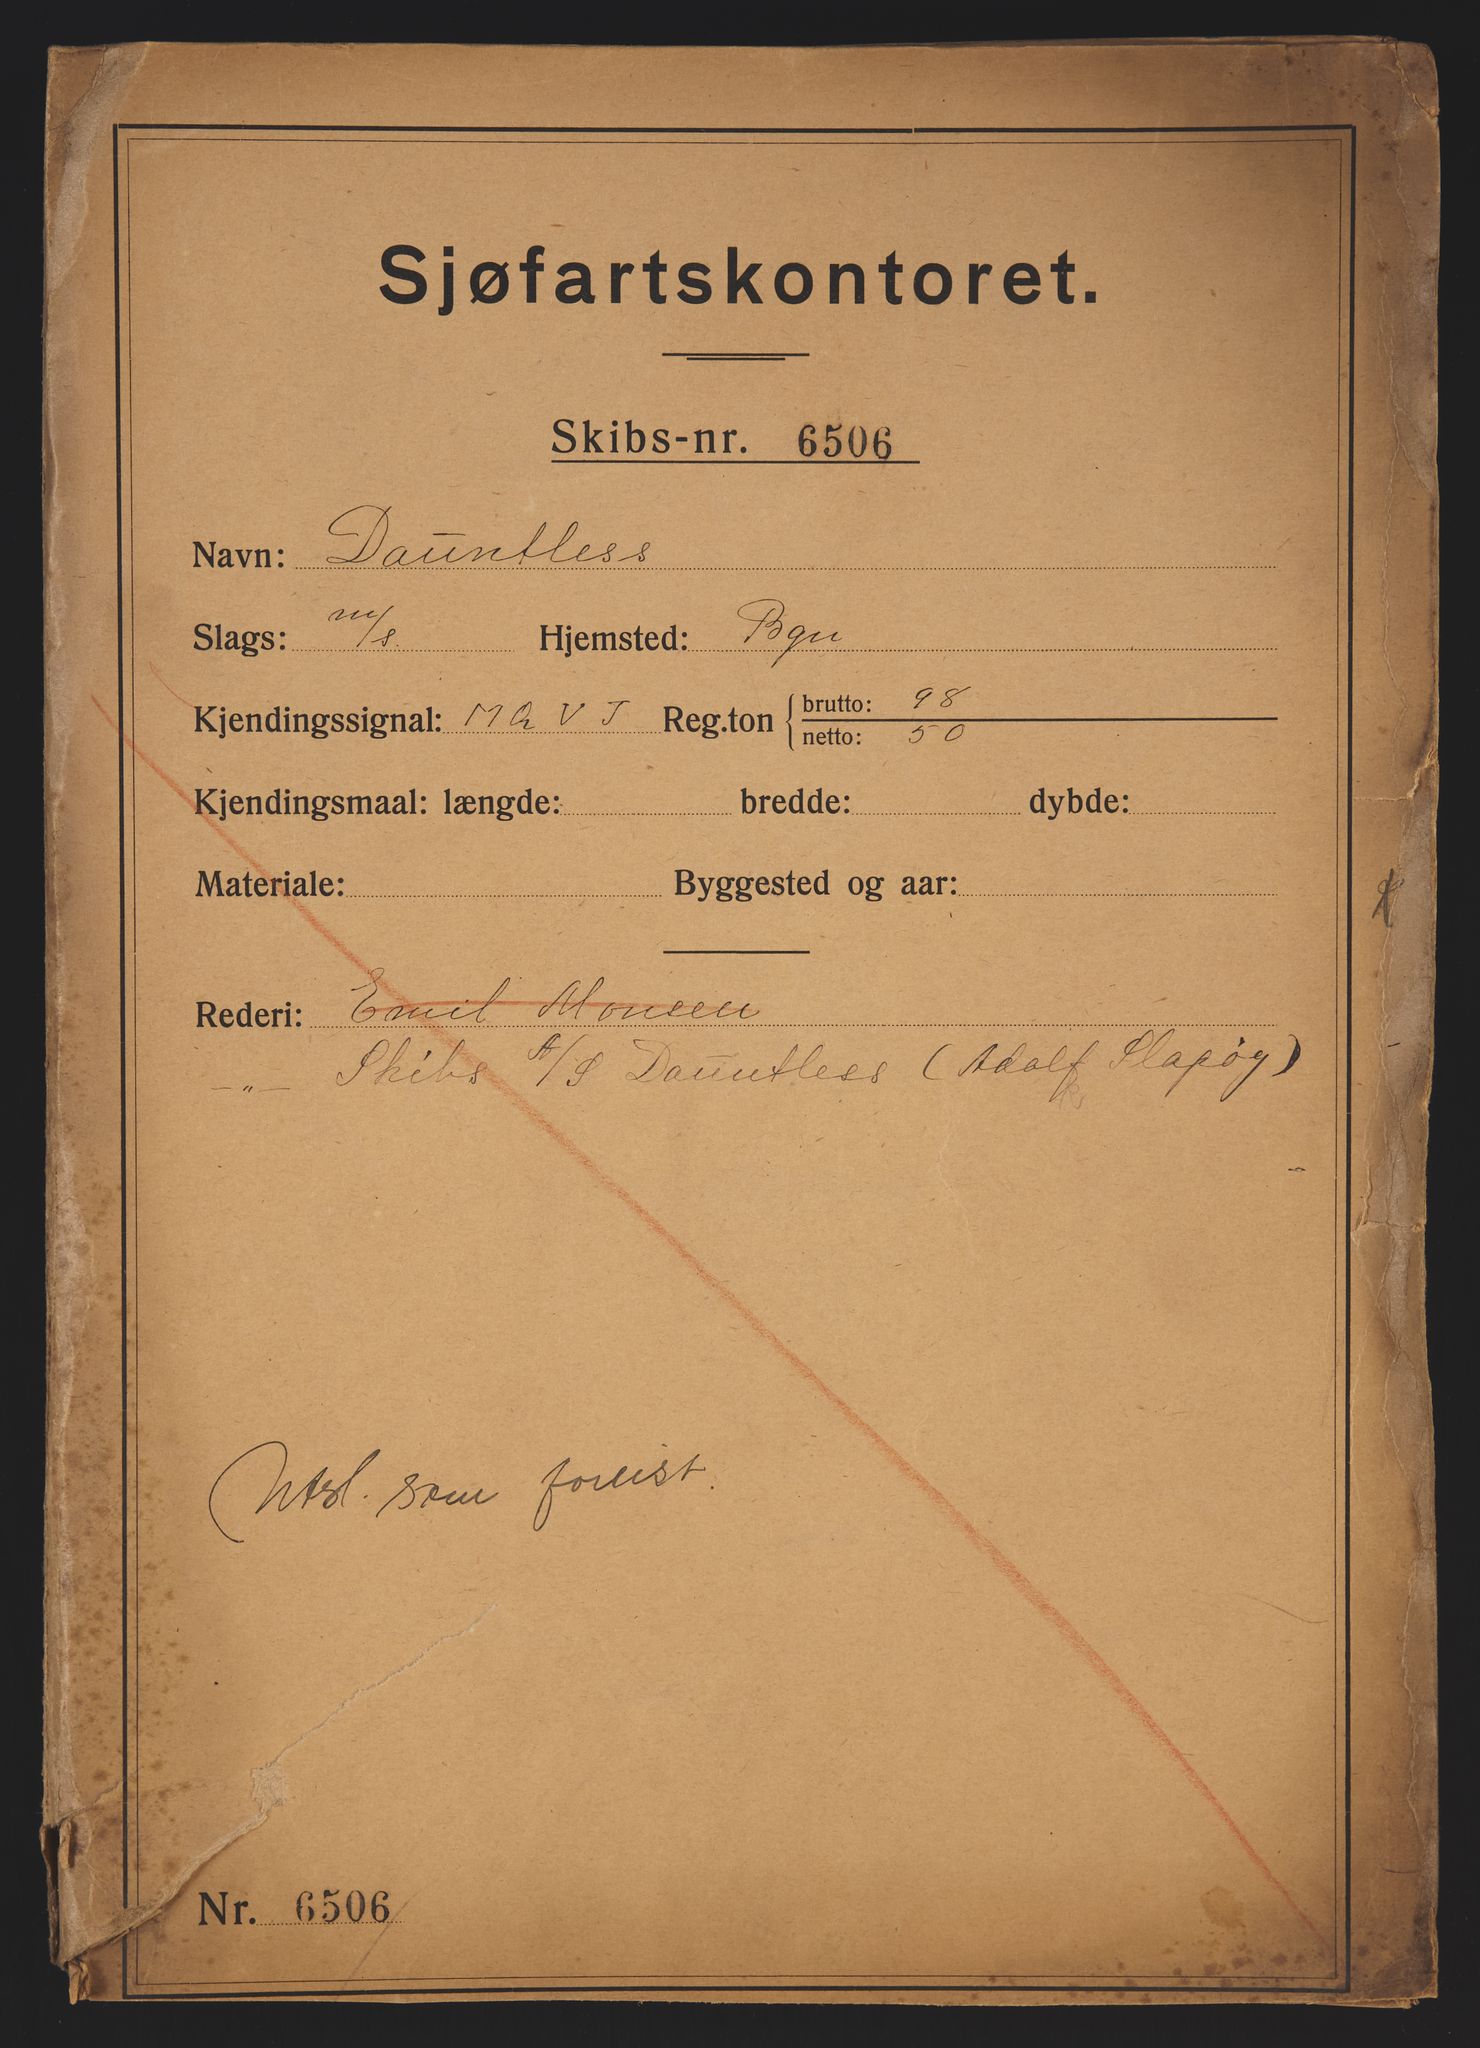 Sjøfartskontoret.
Skibs-nr. 6506
Navn: Dauntless
Slags: m/s. Hjemsted: Bgn
Kjendingssignal: M Q V J Reg.ton brutto: 98
netto: 50
Kjendingsmaal: længde: bredde: dybde:
Materiale: Byggested og aar:
Rederi: Emil Monsen
-„- Skibs A/S Dauntless (Adolf Slapøy)
Utsl. som forlist.
Nr. 6506